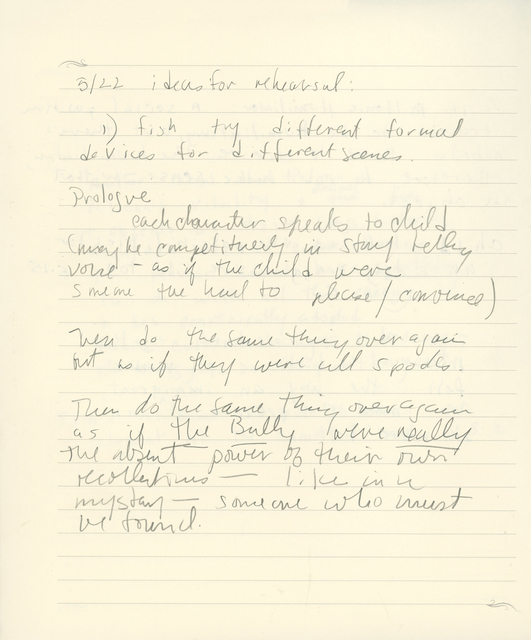 5/22 ideas for rehearsal:
1) fish try different formal
devices for different scenes.
Prologue
each character speaks to child
(maybe competitively in story telling
voice – as if the child were
someone the had to please / convince)
Then do the same thing over again
but as if they were all spooks.
Then do the same thing over again
as if the Bully were really
the absent power of their own
recollections — like in a
mystery — someone who must
be found.